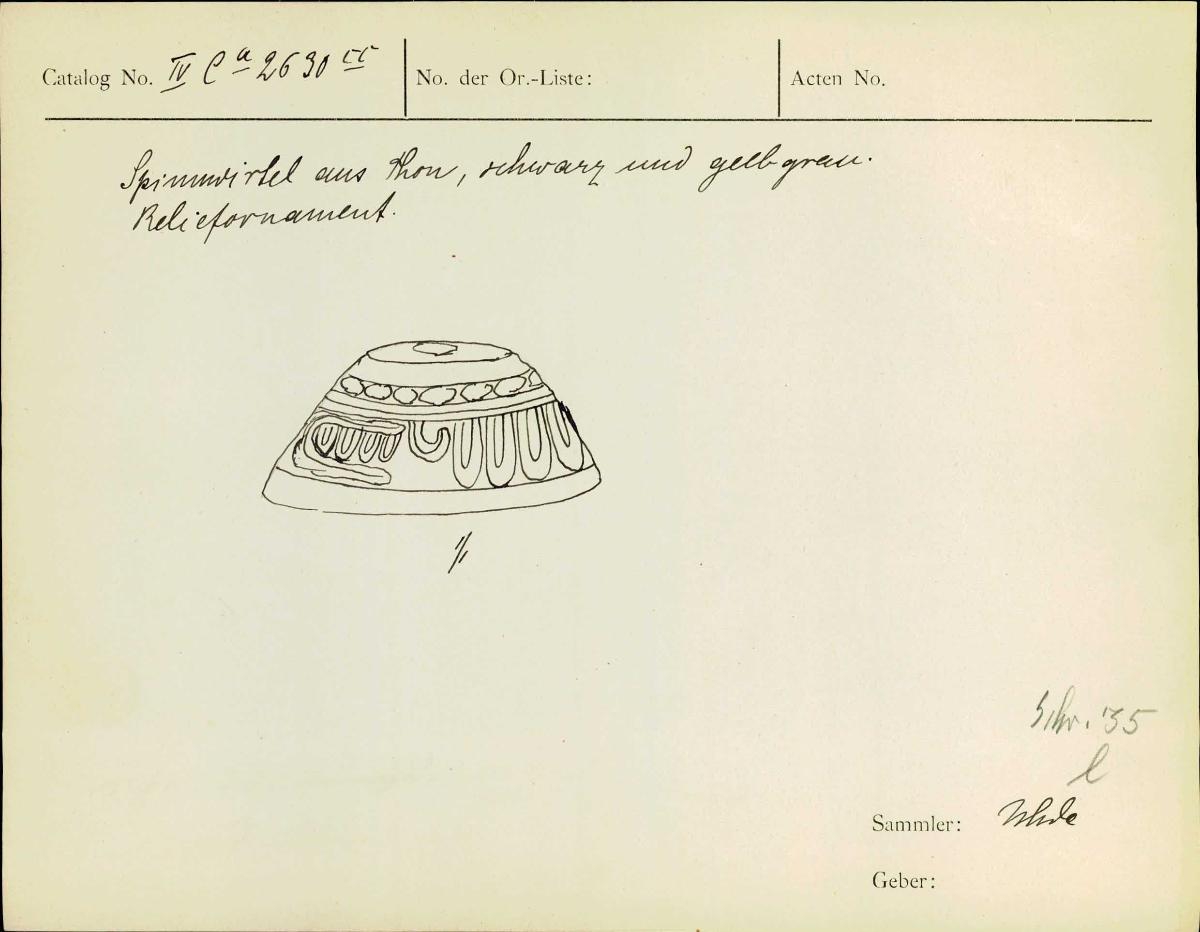 Catalog No. IV Ca 2630 cc
No. der Or.-Liste:
Acten No.
Spinnwirtel aus Thon, schwarz und gelbgrau.
Reliefornament.
1/1
Schr. '35
l
Sammler: Uhde
Geber: